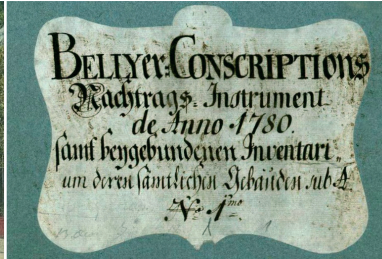 BELLYer: CONSCRIPTIONS
Nachtrags-Instrument
de Anno 1780.
samt beygebundenen Inventari„
um deren sämtlichen Gebäuden sub A
No. 1mo